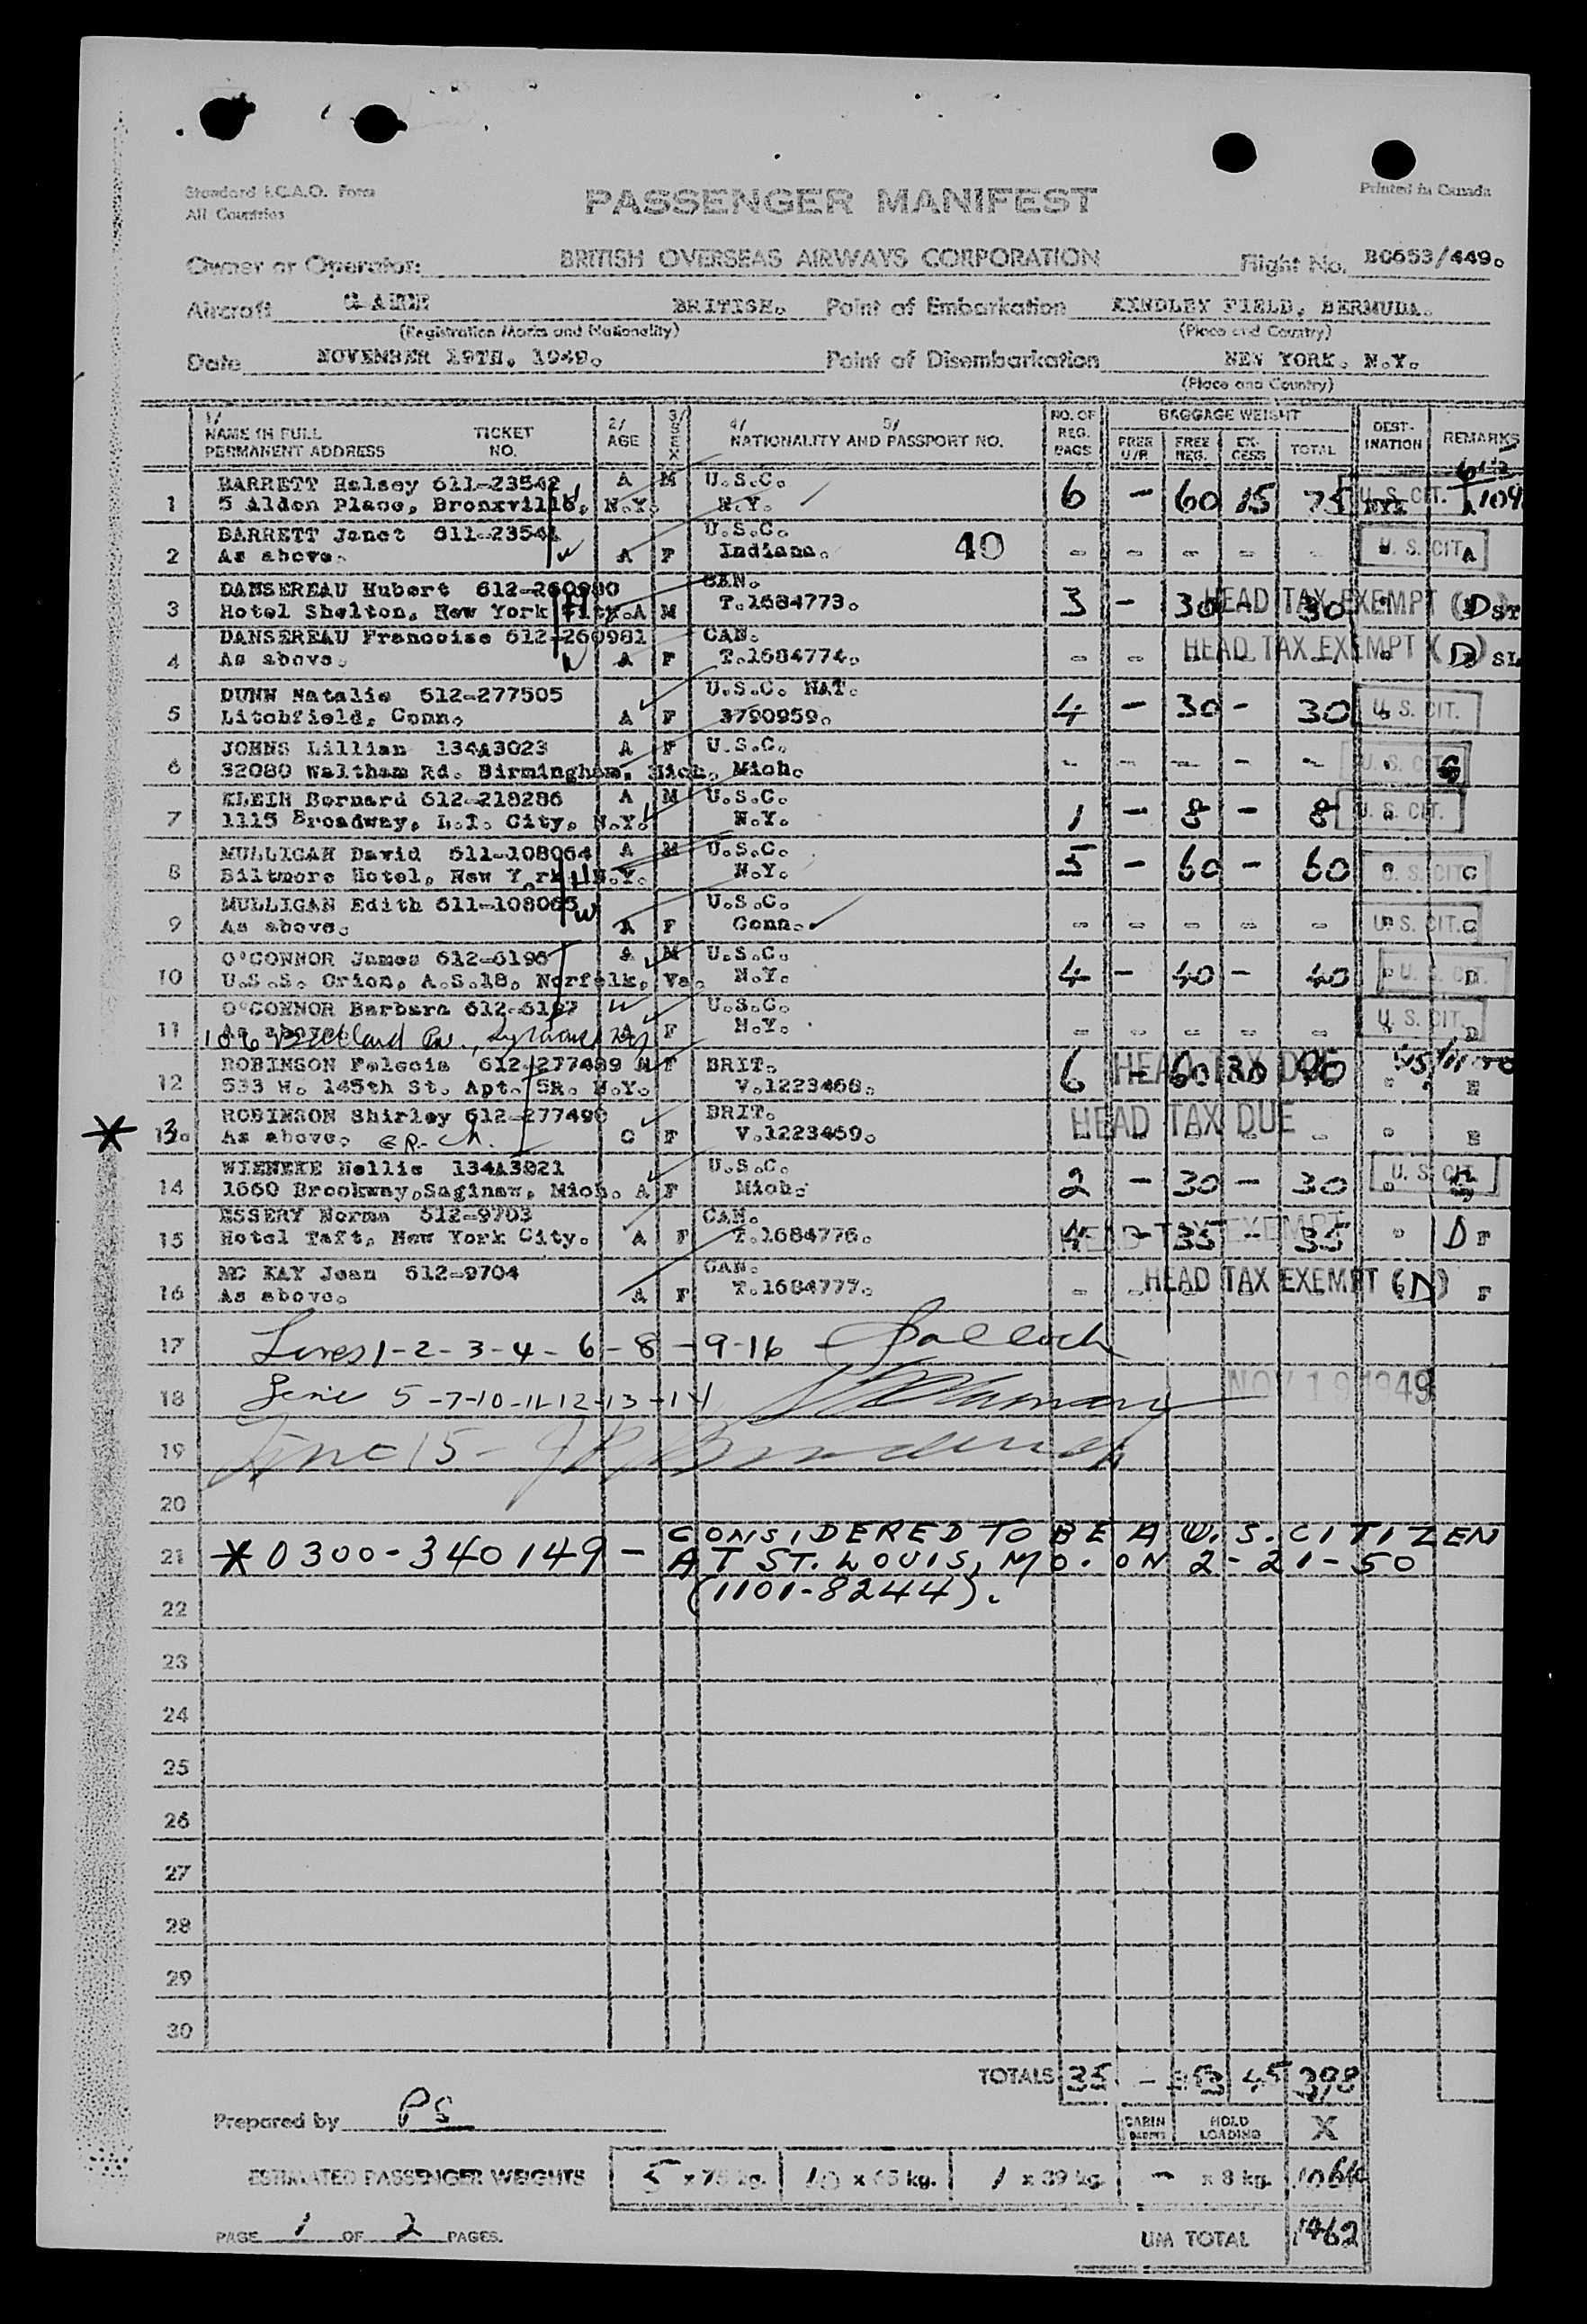 Standard I.C.A.O. Form
All Countries
PASSENGER MANIFEST
Printed in Canada
Owner or Operator: BRITISH OVERSEAS AIRWAYS CORPORATION Flight No. BC653/449.
Aircraft BRITISH. Point of Embarkation KINDLEY FIELD, BERMUDA.
(Registration Marks and Nationality) (Place and Country)
Date NOVEMBER 19TH, 1949. Point of Disembarkation NEW YORK, N.Y.
(Place and Country)
1/ NAME IN FULL PERMANENT ADDRESS TICKET NO. 2/ AGE 3/ SEX 4/ 5/ NATIONALITY AND PASSPORT NO. NO. OF REG. BAGS BAGGAGE WEIGHT FREE U/R FREE REG. EX-CESS TOTAL DEST-INATION REMARKS
1 BARRETT Halsey 611-23542 A M U.S.C. 6 - 60 15 75 U.S. CIT. A
5 Alden Place, Bronxville, N.Y. N.Y.
2 BARRETT Janet 611-23541 U.S.C. 40
As above. A F Indiana. - - - - - U. S. CIT. A
3 DANSEREAU Hubert 612-260980 CAN.
Hotel Shelton, New York City. A M T.1684773. 3 - 30 30 HEAD TAX EXEMPT (D) ST
4 DANSEREAU Francoise 612-260981 CAN.
As above. A F T.1684774. - - HEAD TAX EXEMPT (D) SL
5 DUNN Natalie 612-277505 U.S.C. NAT.
Litchfield, Conn. A F 3790959. 4 - 30 - 30 U. S. CIT.
6 JOHNS Lillian 134A3023 A F U.S.C.
32080 Waltham Rd. Birmingham, Mich. Mich. - - - - - U. S. CIT. G
7 KLEIN Bernard 612-218286 A M U.S.C.
1115 Broadway, L.I. City, N.Y. N.Y. 1 - 8 - 8 U. S. CIT.
8 MULLIGAN David 611-108064 A M U.S.C.
Biltmore Hotel, New York N.Y. N.Y. 5 - 60 - 60 U. S. CIT. C
9 MULLIGAN Edith 611-108065 U.S.C.
As above. A F Conn. - - - - - U. S. CIT. C
10 O'CONNOR James 612-6196 A M U.S.C.
U.S.S. Orion, A.S.18, Norfolk, Va. N.Y. 4 - 40 - 40 U. S. CIT. D
11 O'CONNOR Barbara 612-6197 U.S.C.
As above. A F N.Y. - - - - - U. S. CIT. D
12 ROBINSON Felecia 612-277489 A F BRIT.
533 W. 145th St. Apt. 5R. N.Y. V.1223468. 6 - 60 30 90 HEAD TAX DUE E
13 ROBINSON Shirley 612-277490 BRIT.
* As above. C F V.1223469. HEAD TAX DUE E
14 WIENEKE Nellie 134A3021 U.S.C.
1660 Brockway, Saginaw, Mich. A F Mich. 2 - 30 - 30 U. S. CIT.
15 ESSERY Norma 612-9703 CAN.
Hotel Taft, New York City. A F T.1684776. 4 - 35 - 35 HEAD TAX EXEMPT D F
16 MC KAY Jean 612-9704 CAN.
As above. A F T.1684777. - HEAD TAX EXEMPT (D) F
17 Lines 1-2-3-4-6-8-9-16 -
18 Line 5-7-10-11-12-13-14 NOV 19 1949
19 Line 15 -
20
21 * 0300-340149 - CONSIDERED TO BE A U.S. CITIZEN
AT ST. LOUIS, MO. ON 2-21-50
22 (1101-8244).
23
24
25
26
27
28
29
30
TOTALS 35 - 353 45 398
Prepared by PS CABIN HOLD LOADING X
ESTIMATED PASSENGER WEIGHTS 5 x 75 kg. 10 x 65 kg. 1 x 39 kg. - x 8 kg. 1064
PAGE 1 OF 2 PAGES. UM TOTAL 1462